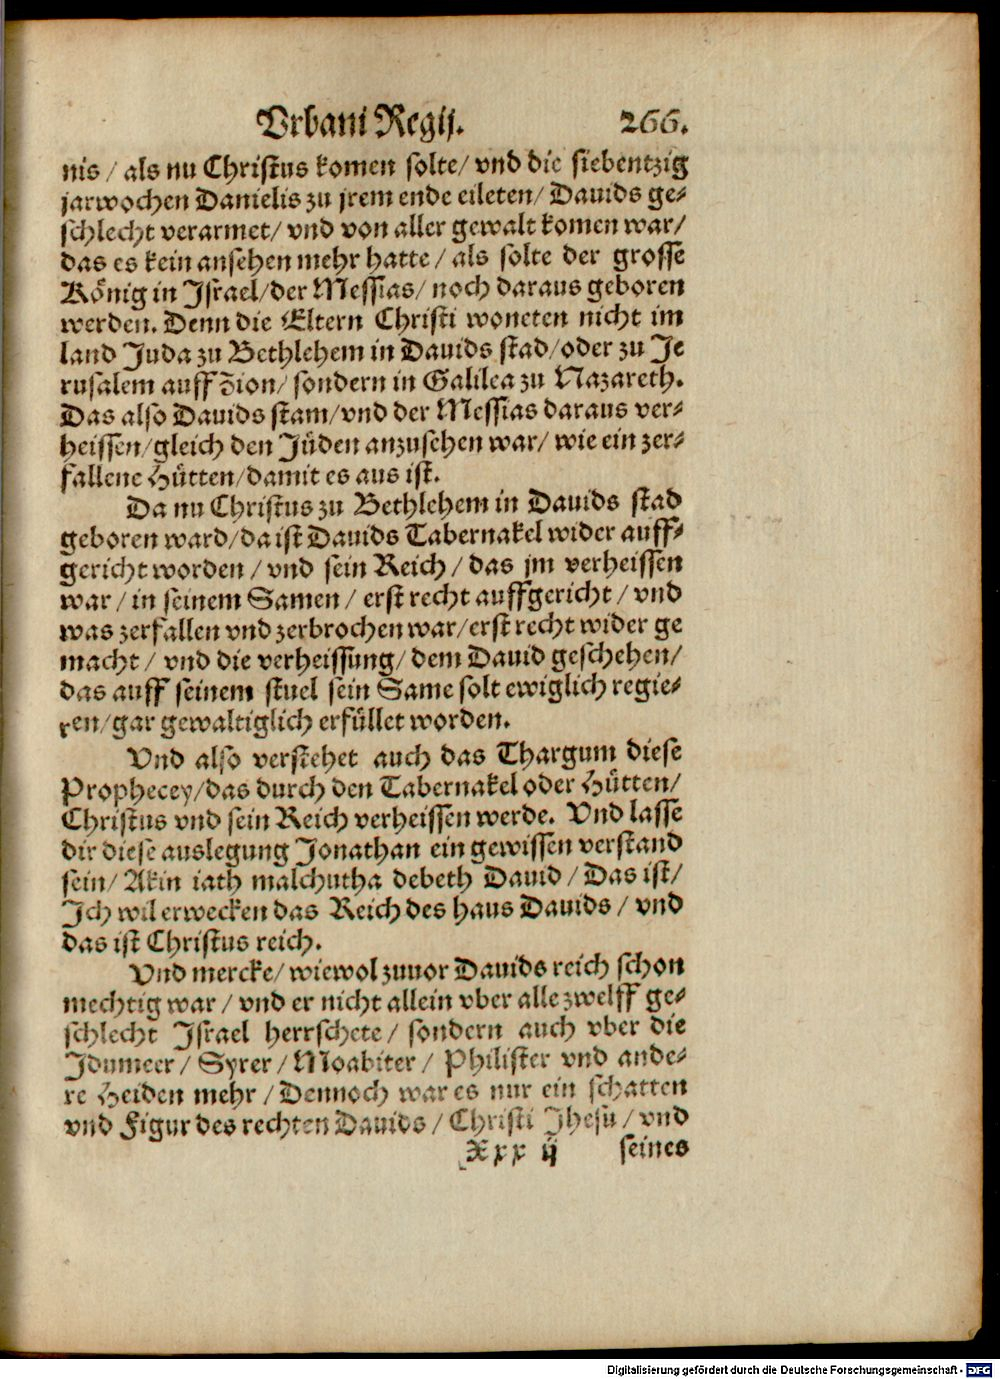 Vrbani Regij. 266.
nis / als nu Christus komen solte / vnd die siebentzig
jarwochen Danielis zu jrem ende eileten / Dauids ge-
schlecht verarmet / vnd von aller gewalt komen war /
das es kein ansehen mehr hatte / als solte der grosse
König in Jsrael / der Messias / noch daraus geboren
werden. Denn die Eltern Christi woneten nicht im
land Juda zu Bethlehem in Dauids stad / oder zu Je
rusalem auff Zion / sondern in Galilea zu Nazareth.
Das also Dauids stam / vnd der Messias daraus ver-
heissen / gleich den Jüden anzusehen war / wie ein zer-
fallene Hütten / damit es aus ist.
Da nu Christus zu Bethlehem in Dauids stad
geboren ward / da ist Dauids Tabernakel wider auff-
gericht worden / vnd sein Reich / das jm verheissen
war / in seinem Samen / erst recht auffgericht / vnd
was zerfallen vnd zerbrochen war / erst recht wider ge
macht / vnd die verheissung / dem Dauid geschehen /
das auff seinem stuel sein Same solt ewiglich regie-
ren / gar gewaltiglich erfüllet worden.
Vnd also verstehet auch das Thargum diese
Prophecey / das durch den Tabernakel oder Hütten /
Christus vnd sein Reich verheissen werde. Vnd lasse
dir diese auslegung Jonathan ein gewissen verstand
sein / Akin iath malchutha debeth Dauid / Das ist /
Jch wil erwecken das Reich des haus Dauids / vnd
das ist Christus reich.
Vnd mercke / wiewol zuuor Dauids reich schon
mechtig war / vnd er nicht allein vber alle zwelff ge-
schlecht Jsrael herrschete / sondern auch vber die
Jdumeer / Syrer / Moabiter / Philister vnd ande-
re Heiden mehr / Dennoch war es nur ein schatten
vnd Figur des rechten Dauids / Christi Jhesu / vnd
Xxx ij seines
Digitalisierung gefördert durch die Deutsche Forschungsgemeinschaft - DFG